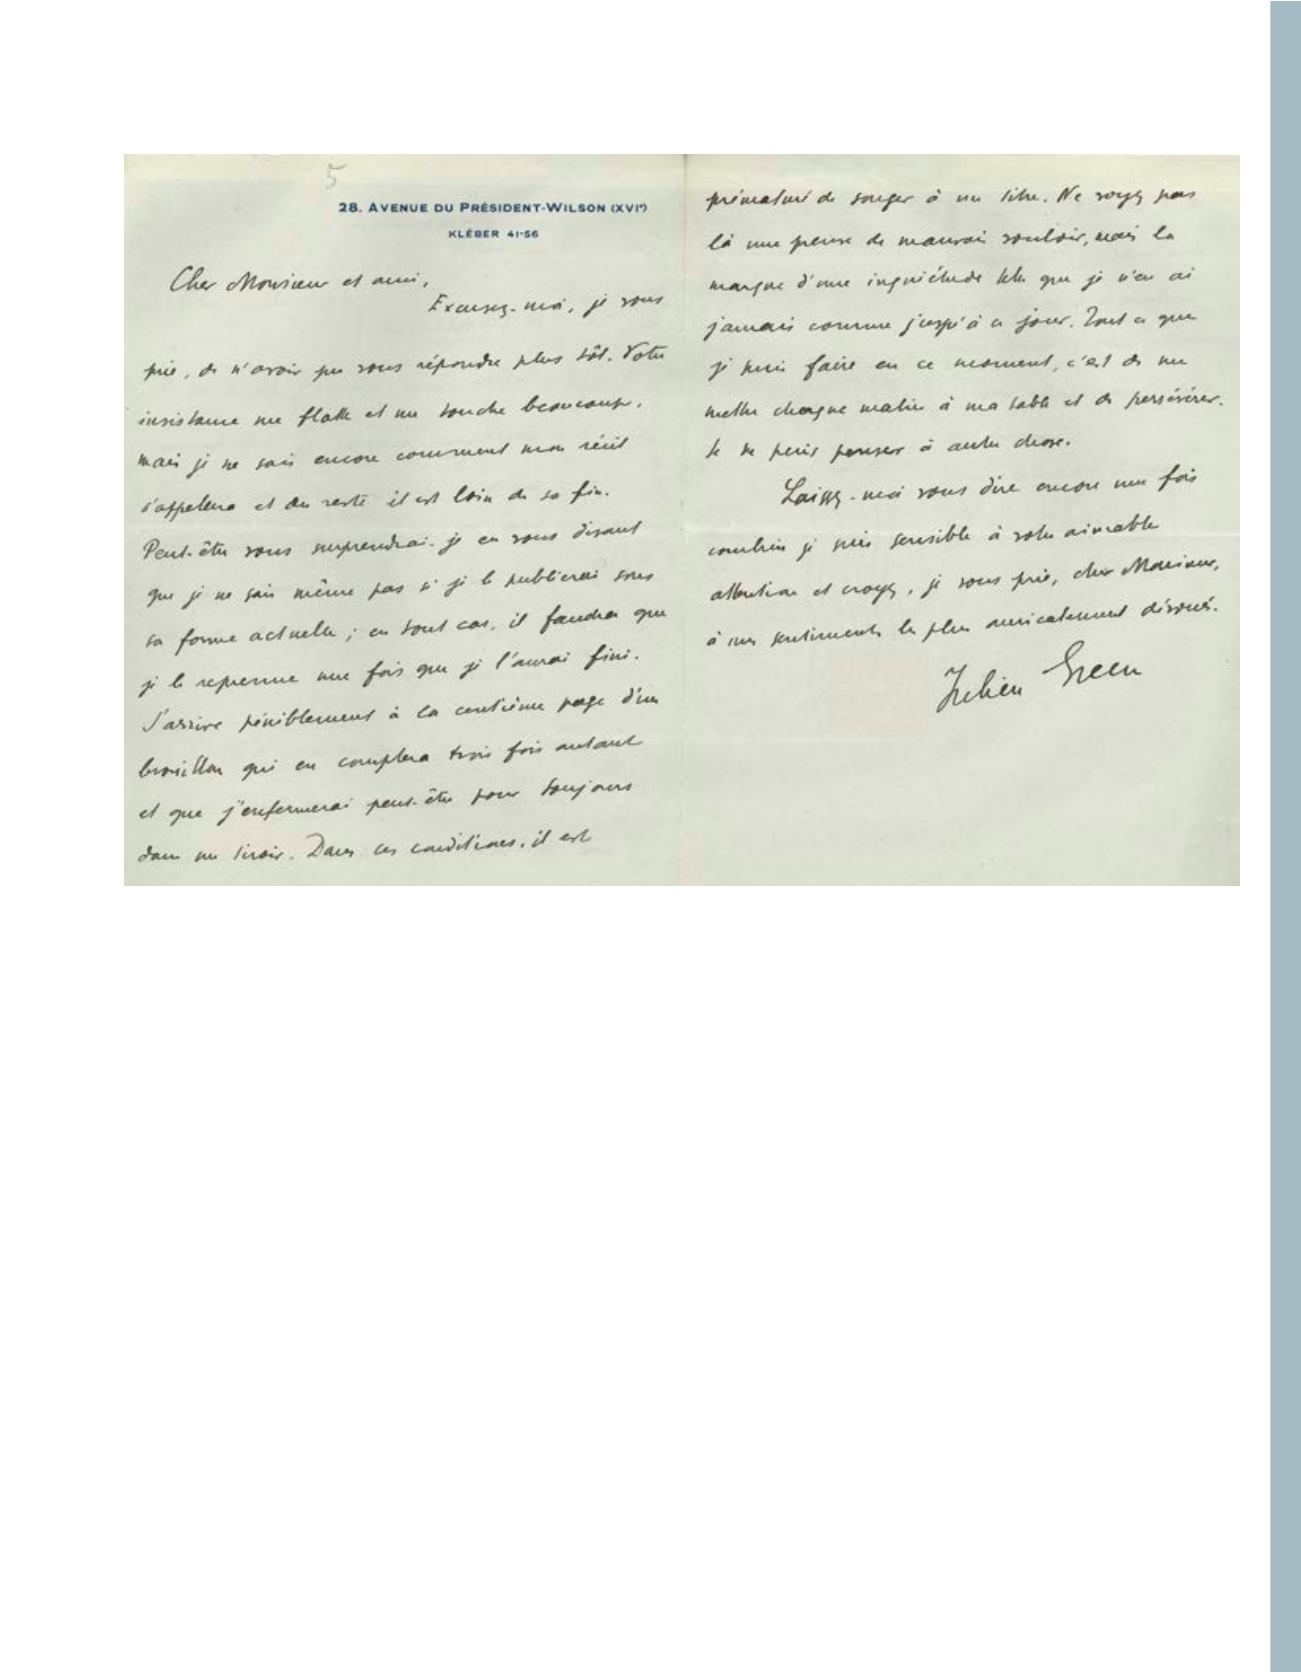 5
28. AVENUE DU PRÉSIDENT-WILSON (XVIe)
KLÉBER 41-56
Cher Monsieur et ami,
Excusez-moi, je vous
prie, de n'avoir pu vous répondre plus tôt. Votre
insistance me flatte et me touche beaucoup,
mais je ne sais encore comment mon récit
s'appellera et du reste il est loin de sa fin.
Peut-être vous surprendrai-je en vous disant
que je ne sais même pas si je le publierai sous
sa forme actuelle ; en tout cas, il faudra que
je le reprenne une fois que je l'aurai fini.
J'arrive péniblement à la centième page d'un
brouillon qui en comptera trois fois autant
et que j'enfermerai peut-être pour toujours
dans un tiroir. Dans ces conditions, il est
prématuré de songer à un titre. Ne voyez pas
là une preuve de mauvais vouloir, mais la
marque d'une inquiétude telle que je n'en ai
jamais connue jusqu'à ce jour. Tout ce que
je puis faire en ce moment, c'est de me
mettre chaque matin à ma table et de persévérer.
Je ne puis penser à autre chose.
Laissez-moi vous dire encore une fois
combien je suis sensible à votre aimable
attention et croyez, je vous prie, cher Monsieur,
à mes sentiments les plus amicalement dévoués.
Julien Green